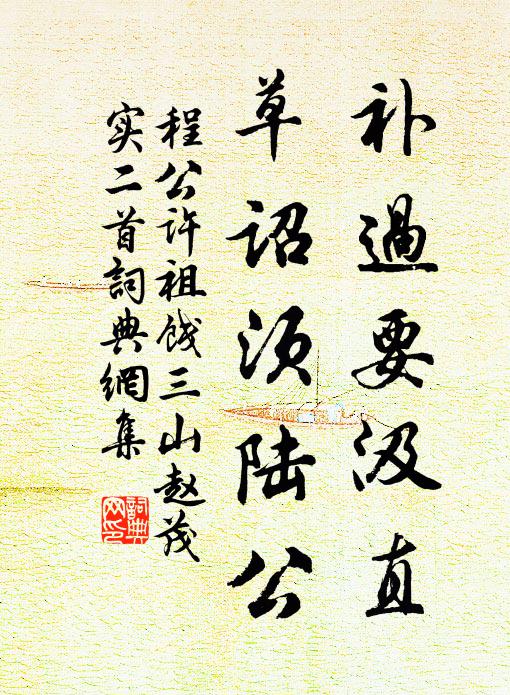 补过要汲直
草诏须陆公
程公许祖饯三山赵茂
实二首詞典網集
詞典
网印